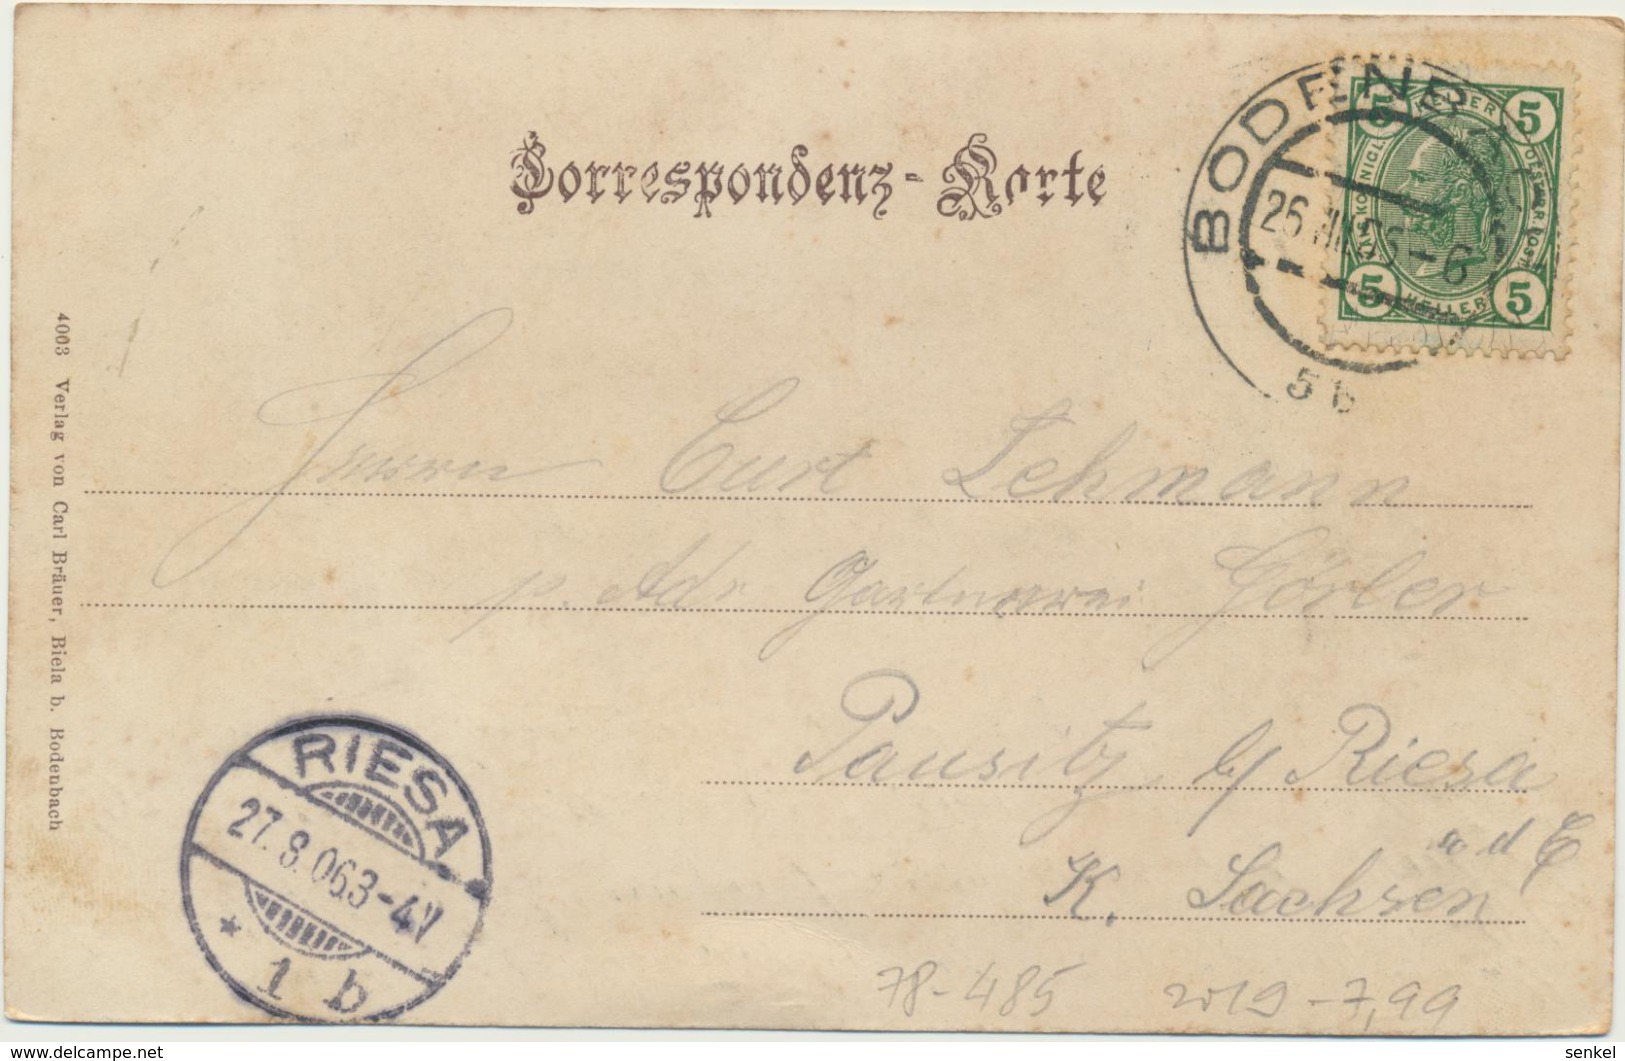 Correspondenz-Karte
BODENB
26 VIII 06 - 6
5 b
5 HELLER 5
KAIS. KÖNIGL. OESTERR. POST.
5 HELLER 5
Herrn Curt Lehmann
p. Adr Gärtnerei Görler
Pausitz b/ Riesa
a d E
K. Sachsen
4003 Verlag von Carl Bräuer, Biela b. Bodenbach
RIESA
27. 8. 06 3-4 V
* 1 b
78-485 w19 -7,99
delcampe.net
senkel